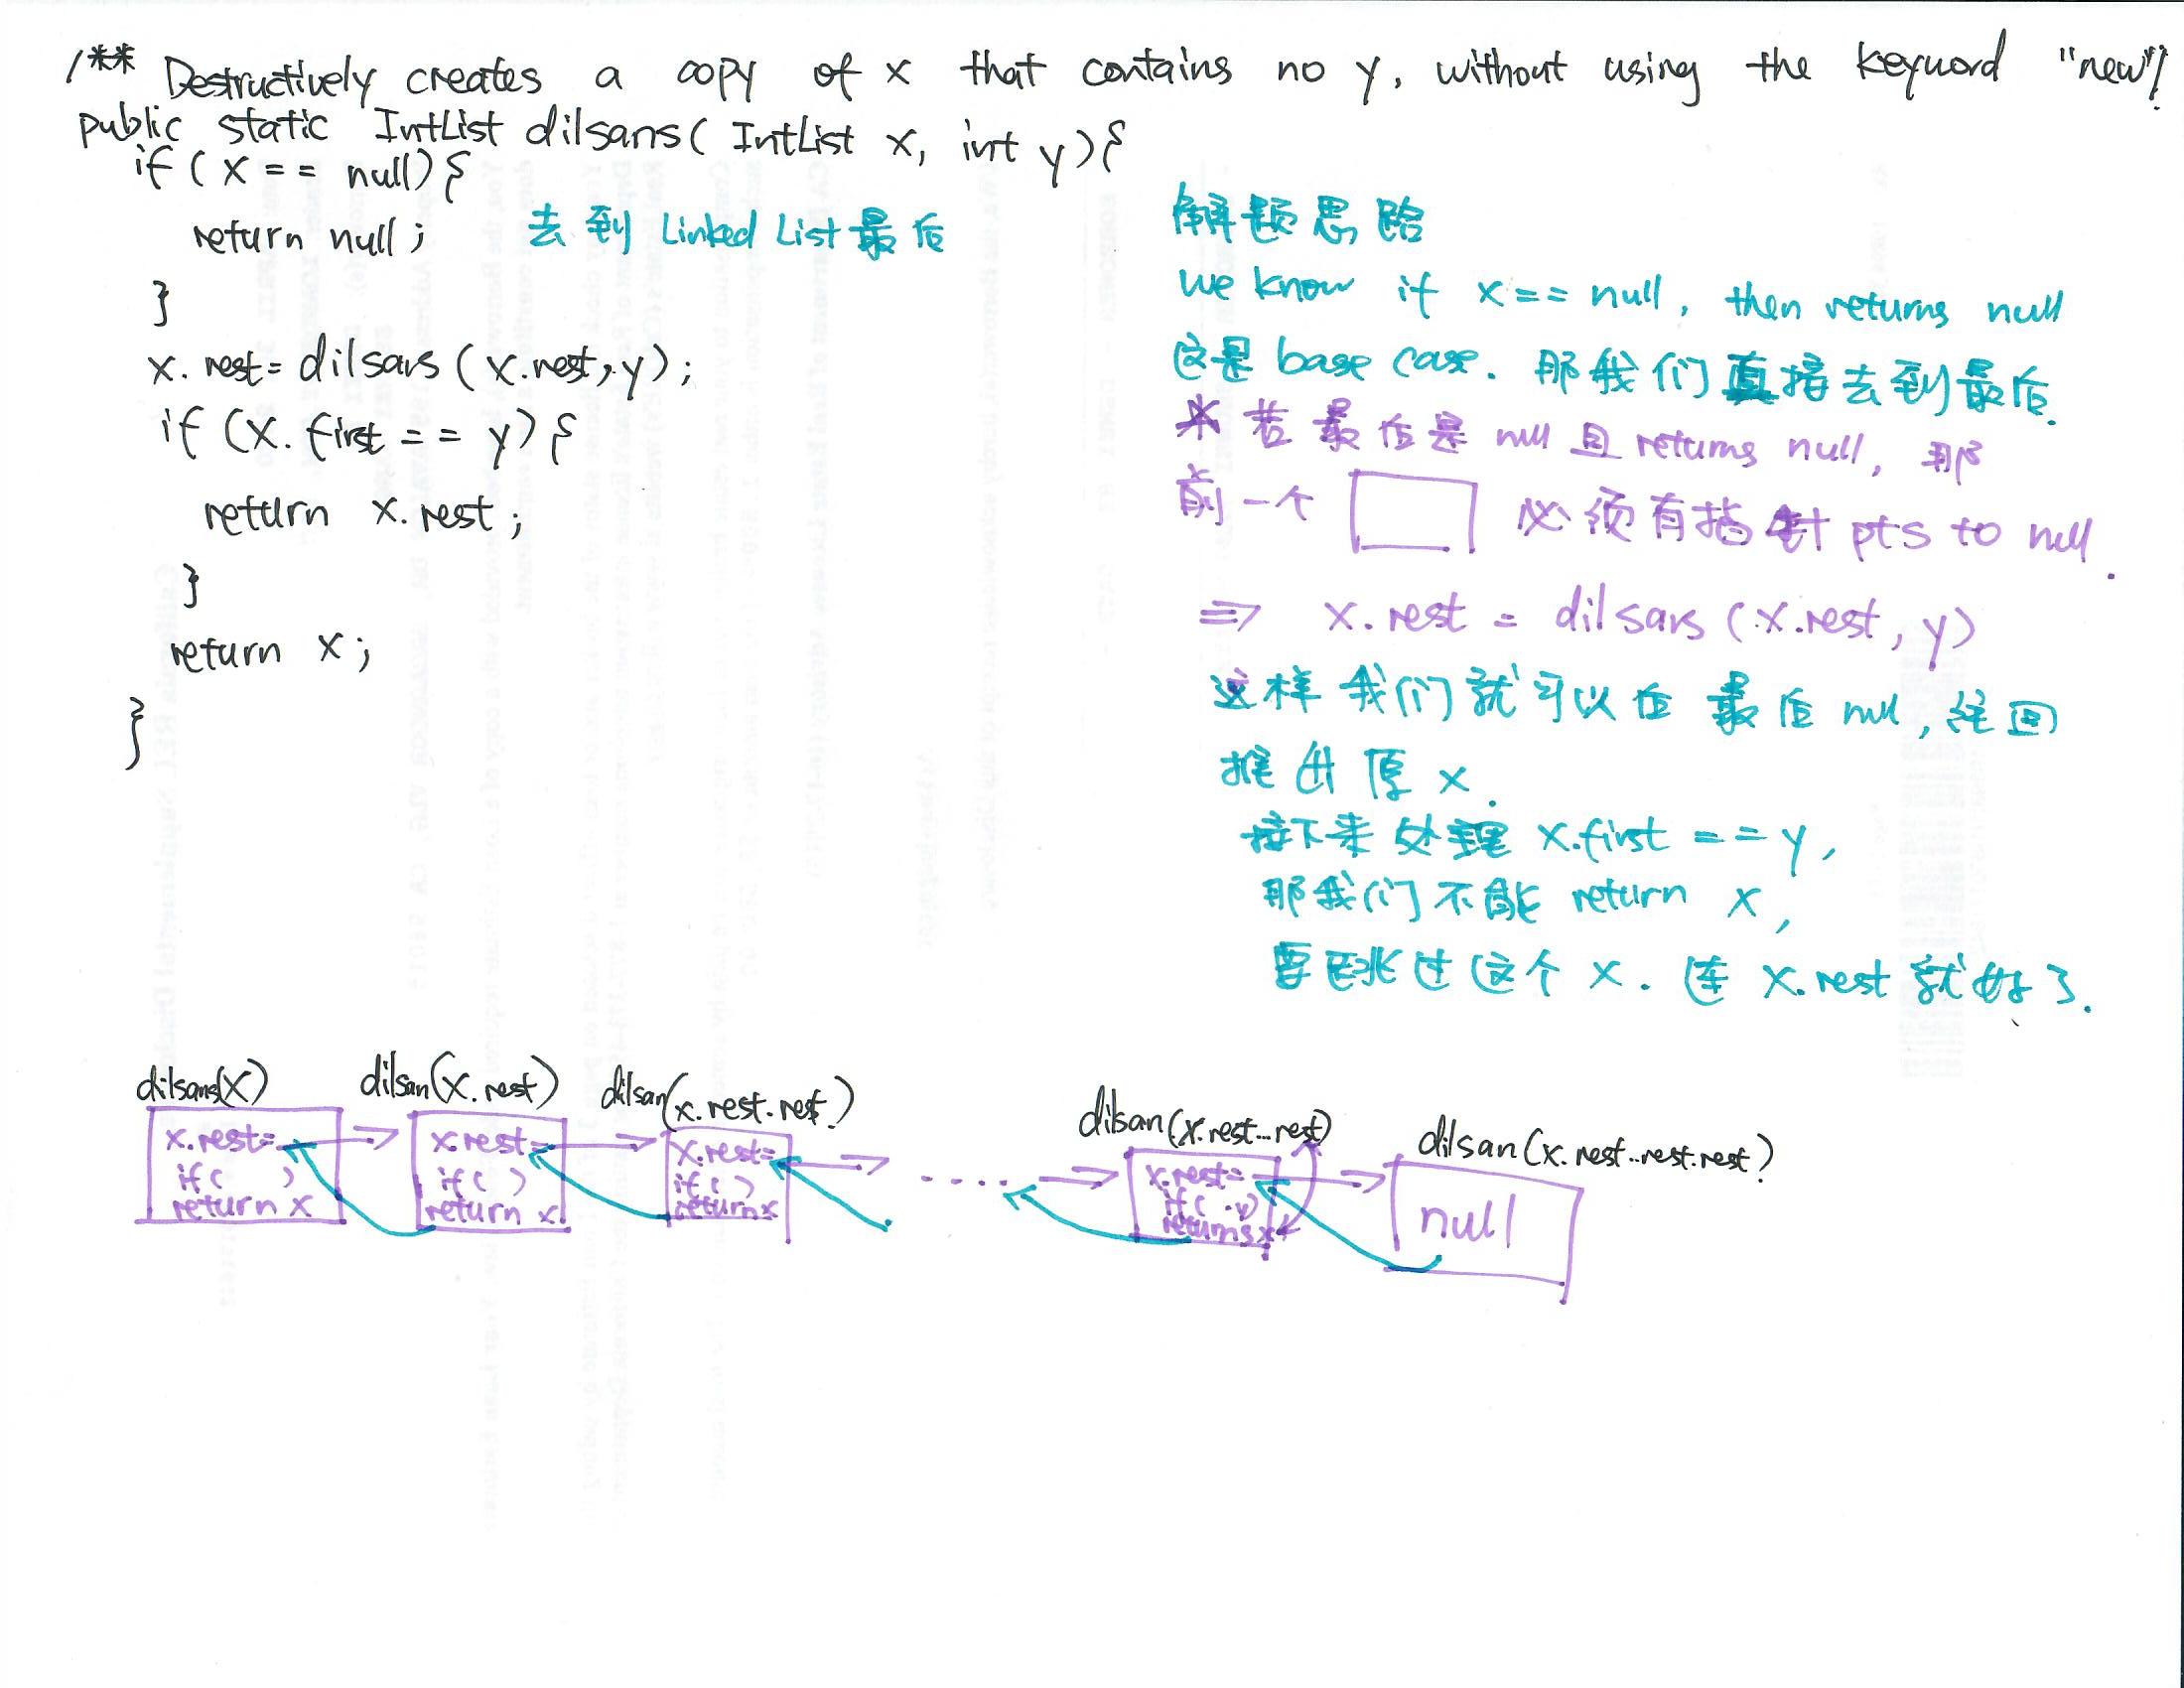 /** Destructively creates a copy of x that contains no y, without using the keyword "new"!
public static IntList dilsans( IntList x, int y){
if (x == null){
return null; 去到 Linked List 最后
}
x.rest= dilsans (x.rest, y);
if (x.first == y){
return x.rest;
}
return x;
}
解题思路
we know if x== null, then returns null
这是 base case. 那我们直接去到最后.
若最后是 null 且 returns null, 那
前一个 必须有指针 pts to null.
⇒ x.rest = dilsans (x.rest, y)
这样我们就可以在最后 null, 往回
推出原 x.
接下来处理 x.first == y,
那我们不能 return x,
要跳过这个 x. 连 x.rest 就好了.
dilsans(x) dilsan(x.rest) dilsan(x.rest.rest) dilsan(x.rest...rest) dilsan(x.rest..rest.rest)
x.rest= x.rest= x.rest= x.rest=
if( ) if( ) if( ) .... if( .y) null
return x return x return x returns x